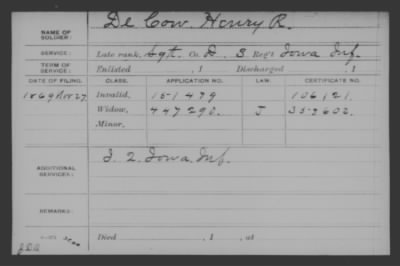 NAME OF SOLDIER: De Cow, Henry R.
SERVICE: Late rank, Sgt. Co. D. 3. Reg't Iowa Inf.
TERM OF SERVICE: Enlisted , 1 Discharged 1
DATE OF FILING. CLASS. APPLICATION NO. LAW. CERTIFICATE NO.
1869 Nov 27 Invalid, 151479 106121.
Widow, 447290. J 357602.
Minor,
ADDITIONAL SERVICES: I 2. Iowa. Inf.
REMARKS:
Died , 1 , at